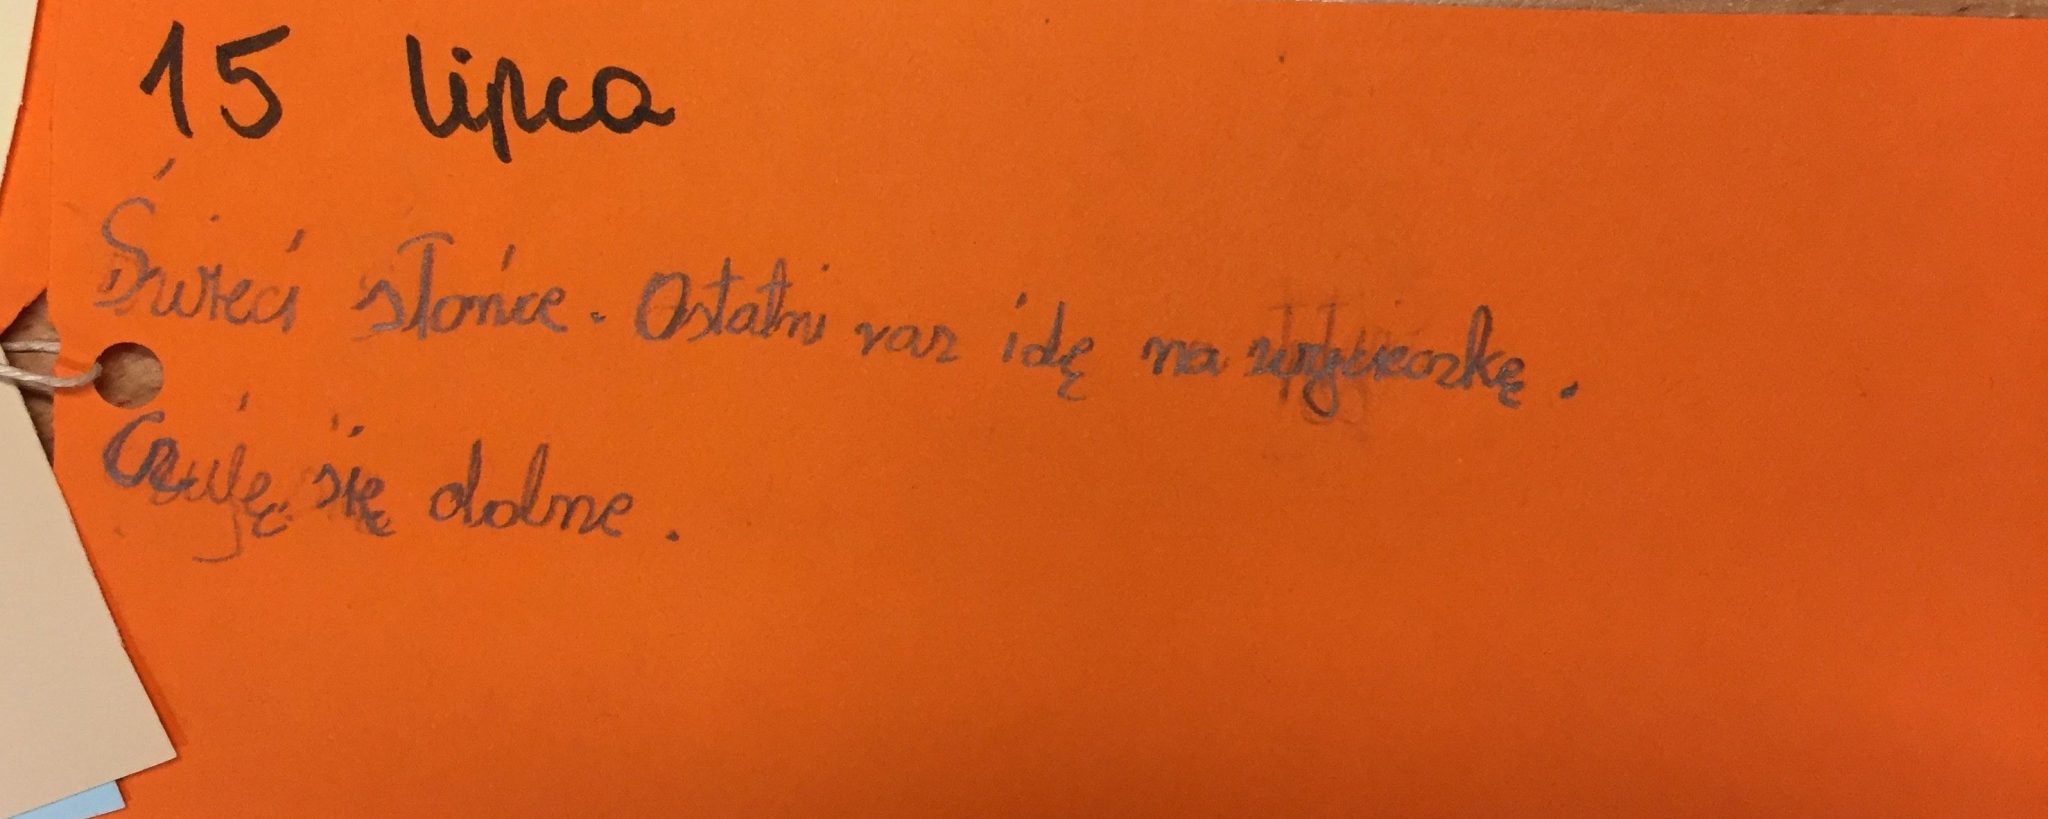 15 lipca
Świeci słońce. Ostatni raz idę na wycieczkę.
Czuję się dolne.